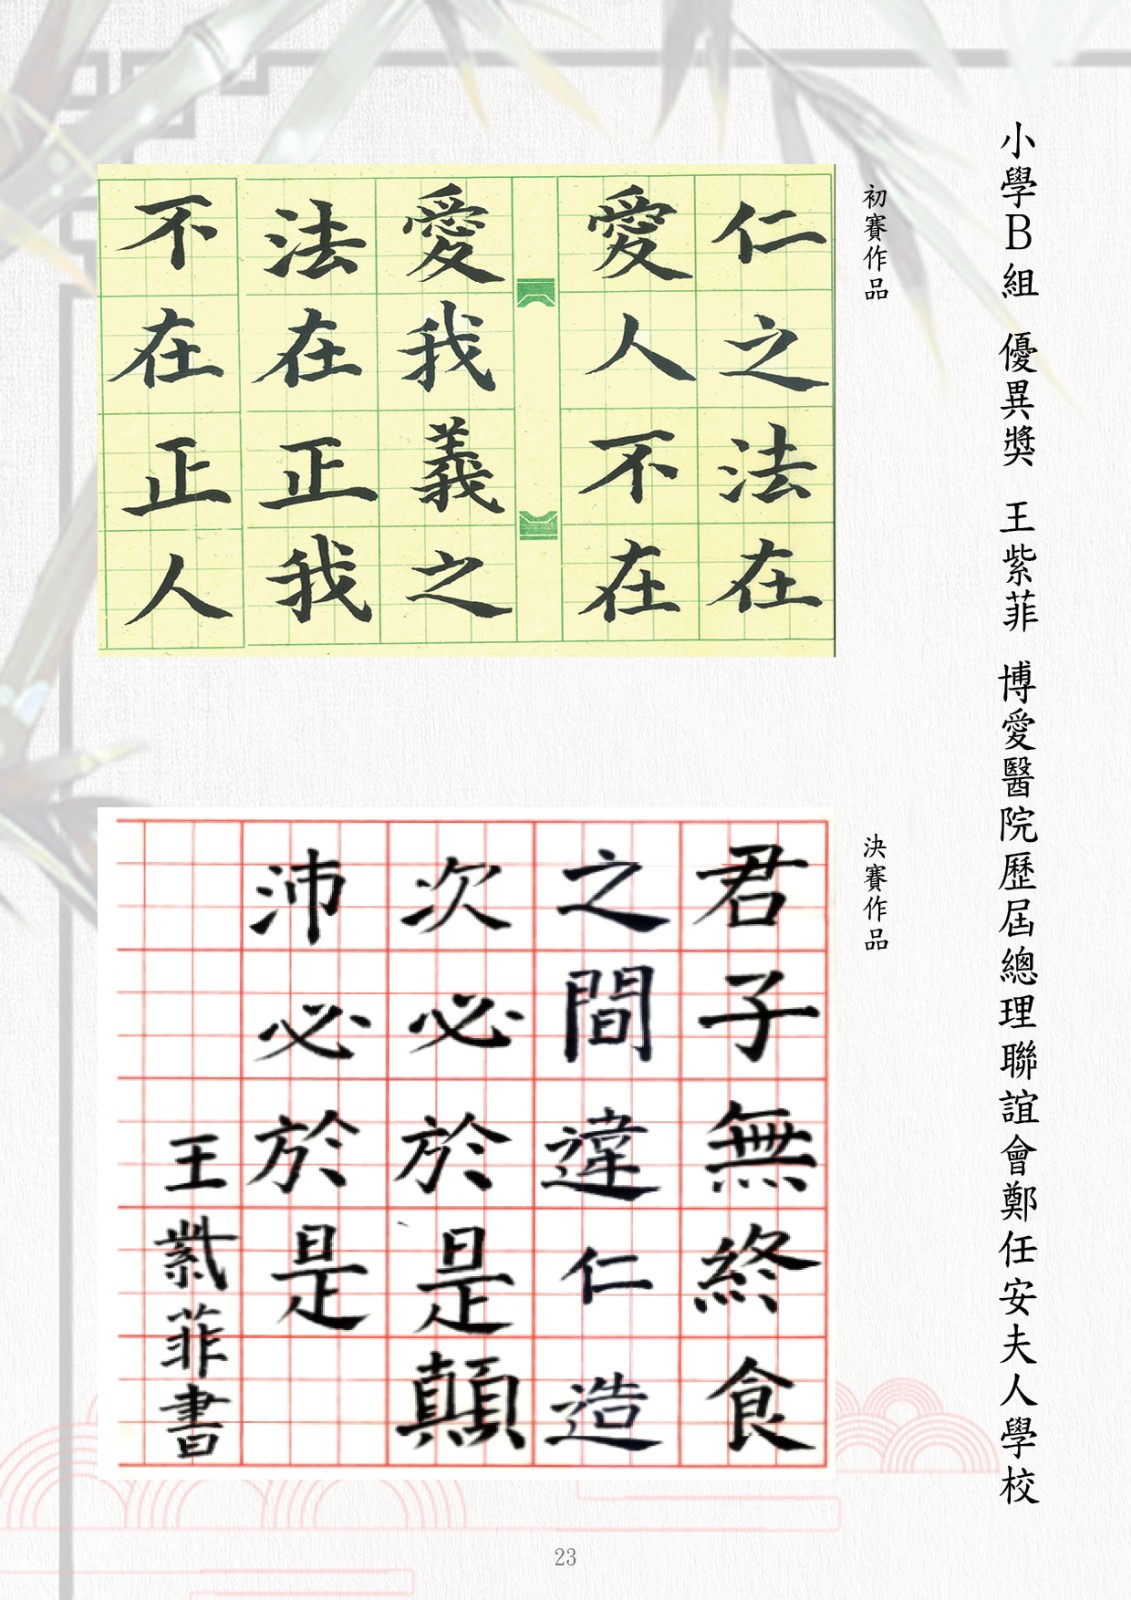 小學B組 優異獎 王紫菲 博愛醫院歷屆總理聯誼會鄭任安夫人學校
初賽作品
仁之法在
愛人不在
愛我義之
法在正我
不在正人
決賽作品
君子無終食
之間違仁造
次必於是顛
沛必於是
王紫菲書
23